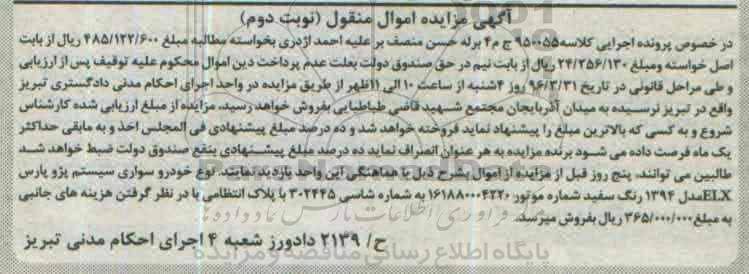 آگهی مزایده اموال منقول (نوبت دوم)
در خصوص پرونده اجرایی کلاسه ۹۵۰۰۵۵ ج م۴ برله حسن منصف بر علیه احمد اژدری بخواسته مطالبه مبلغ ۴۸۵/۱۲۲/۶۰۰ ریال از بابت
اصل خواسته ومبلغ ۲۴/۲۵۶/۱۳۰ ریال از بابت نیم در حق صندوق دولت بعلت عدم پرداخت دین اموال محکوم علیه توقیف پس از ارزیابی
و طی مراحل قانونی در تاریخ ۹۶/۳/۳۱ روز ۴شنبه از ساعت ۱۰ الی ۱۱ظهر از طریق مزایده در واحد اجرای احکام مدنی دادگستری تبریز
واقع در تبریز نرسیده به میدان آذربایجان مجتمع شهید قاضی طباطبایی بفروش خواهد رسید، مزایده از مبلغ ارزیابی شده کارشناس
شروع و به کسی که بالاترین مبلغ را پیشنهاد نماید فروخته خواهد شد و ده درصد مبلغ پیشنهادی فی المجلس اخذ و به مابقی حداکثر
یک ماه فرصت داده می شود برنده مزایده به هر عنوان انصراف نماید ده درصد مبلغ پیشنهادی بنفع صندوق دولت ضبط خواهد شد
طالبین می توانند، پنج روز قبل از مزایده از اموال بشرح ذیل با هماهنگی این واحد بازدید نمایند. نوع خودرو سواری سیستم پژو پارس
ELXمدل ۱۳۹۴ رنگ سفید شماره موتور ۱۶۱۸۸۰۰۰۴۲۲۰ به شماره شاسی ۳۰۲۴۴۵ با پلاک انتظامی با در نظر گرفتن هزینه های جانبی
به مبلغ ۳۶۵/۰۰۰/۰۰۰ ریال بفروش میرسد.
ح/ ۲۱۳۹ دادورز شعبه ۴ اجرای احکام مدنی تبریز
پایگاه اطلاع رسانی مناقصه ومزایده